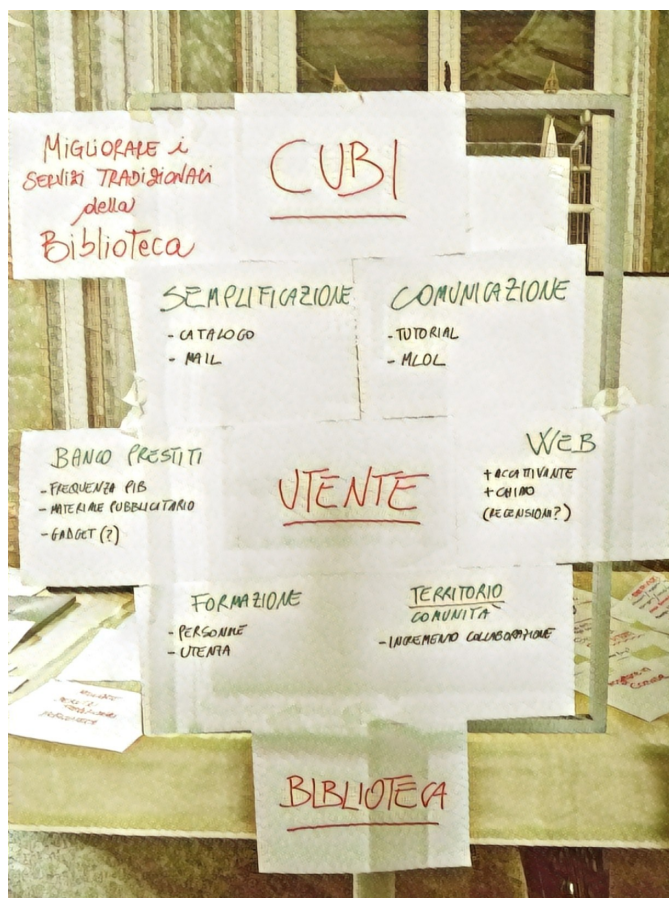 MIGLIORARE i
SERVIZI TRADIZIONALI
della
Biblioteca
CUBI
SEMPLIFICAZIONE
- CATALOGO
- MAIL
COMUNICAZIONE
- TUTORIAL
- MLOL
BANCO PRESTITI
- FREQUENZA PIB
- MATERIALE PUBBLICITARIO
- GADGET (?)
UTENTE
WEB
+ ACCATTIVANTE
+ CHIARO
(RECENSIONI?)
FORMAZIONE
- PERSONALE
- UTENZA
TERRITORIO
COMUNITÀ
- INCREMENTO COLLABORAZIONE
BIBLIOTECA